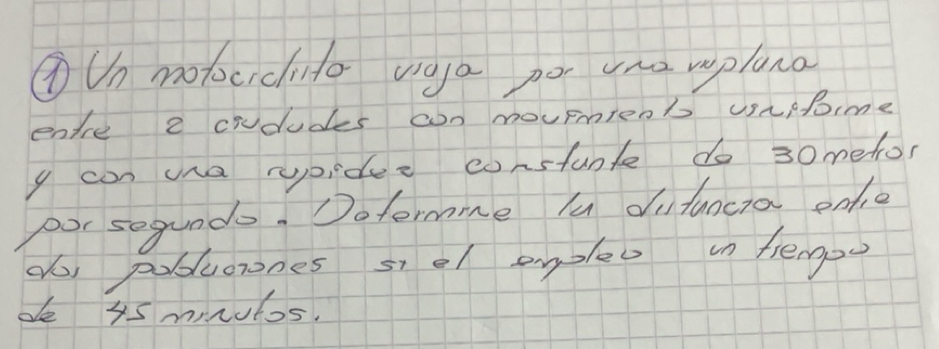 ① Un motociclista viaja por una vía plana
entre 2 ciudades con movimiento uniforme
y con una rapidez constante de 30 metros
por segundo. Determine la distancia entre
dos poblaciones si el empleo un tiempo
de 45 minutos.